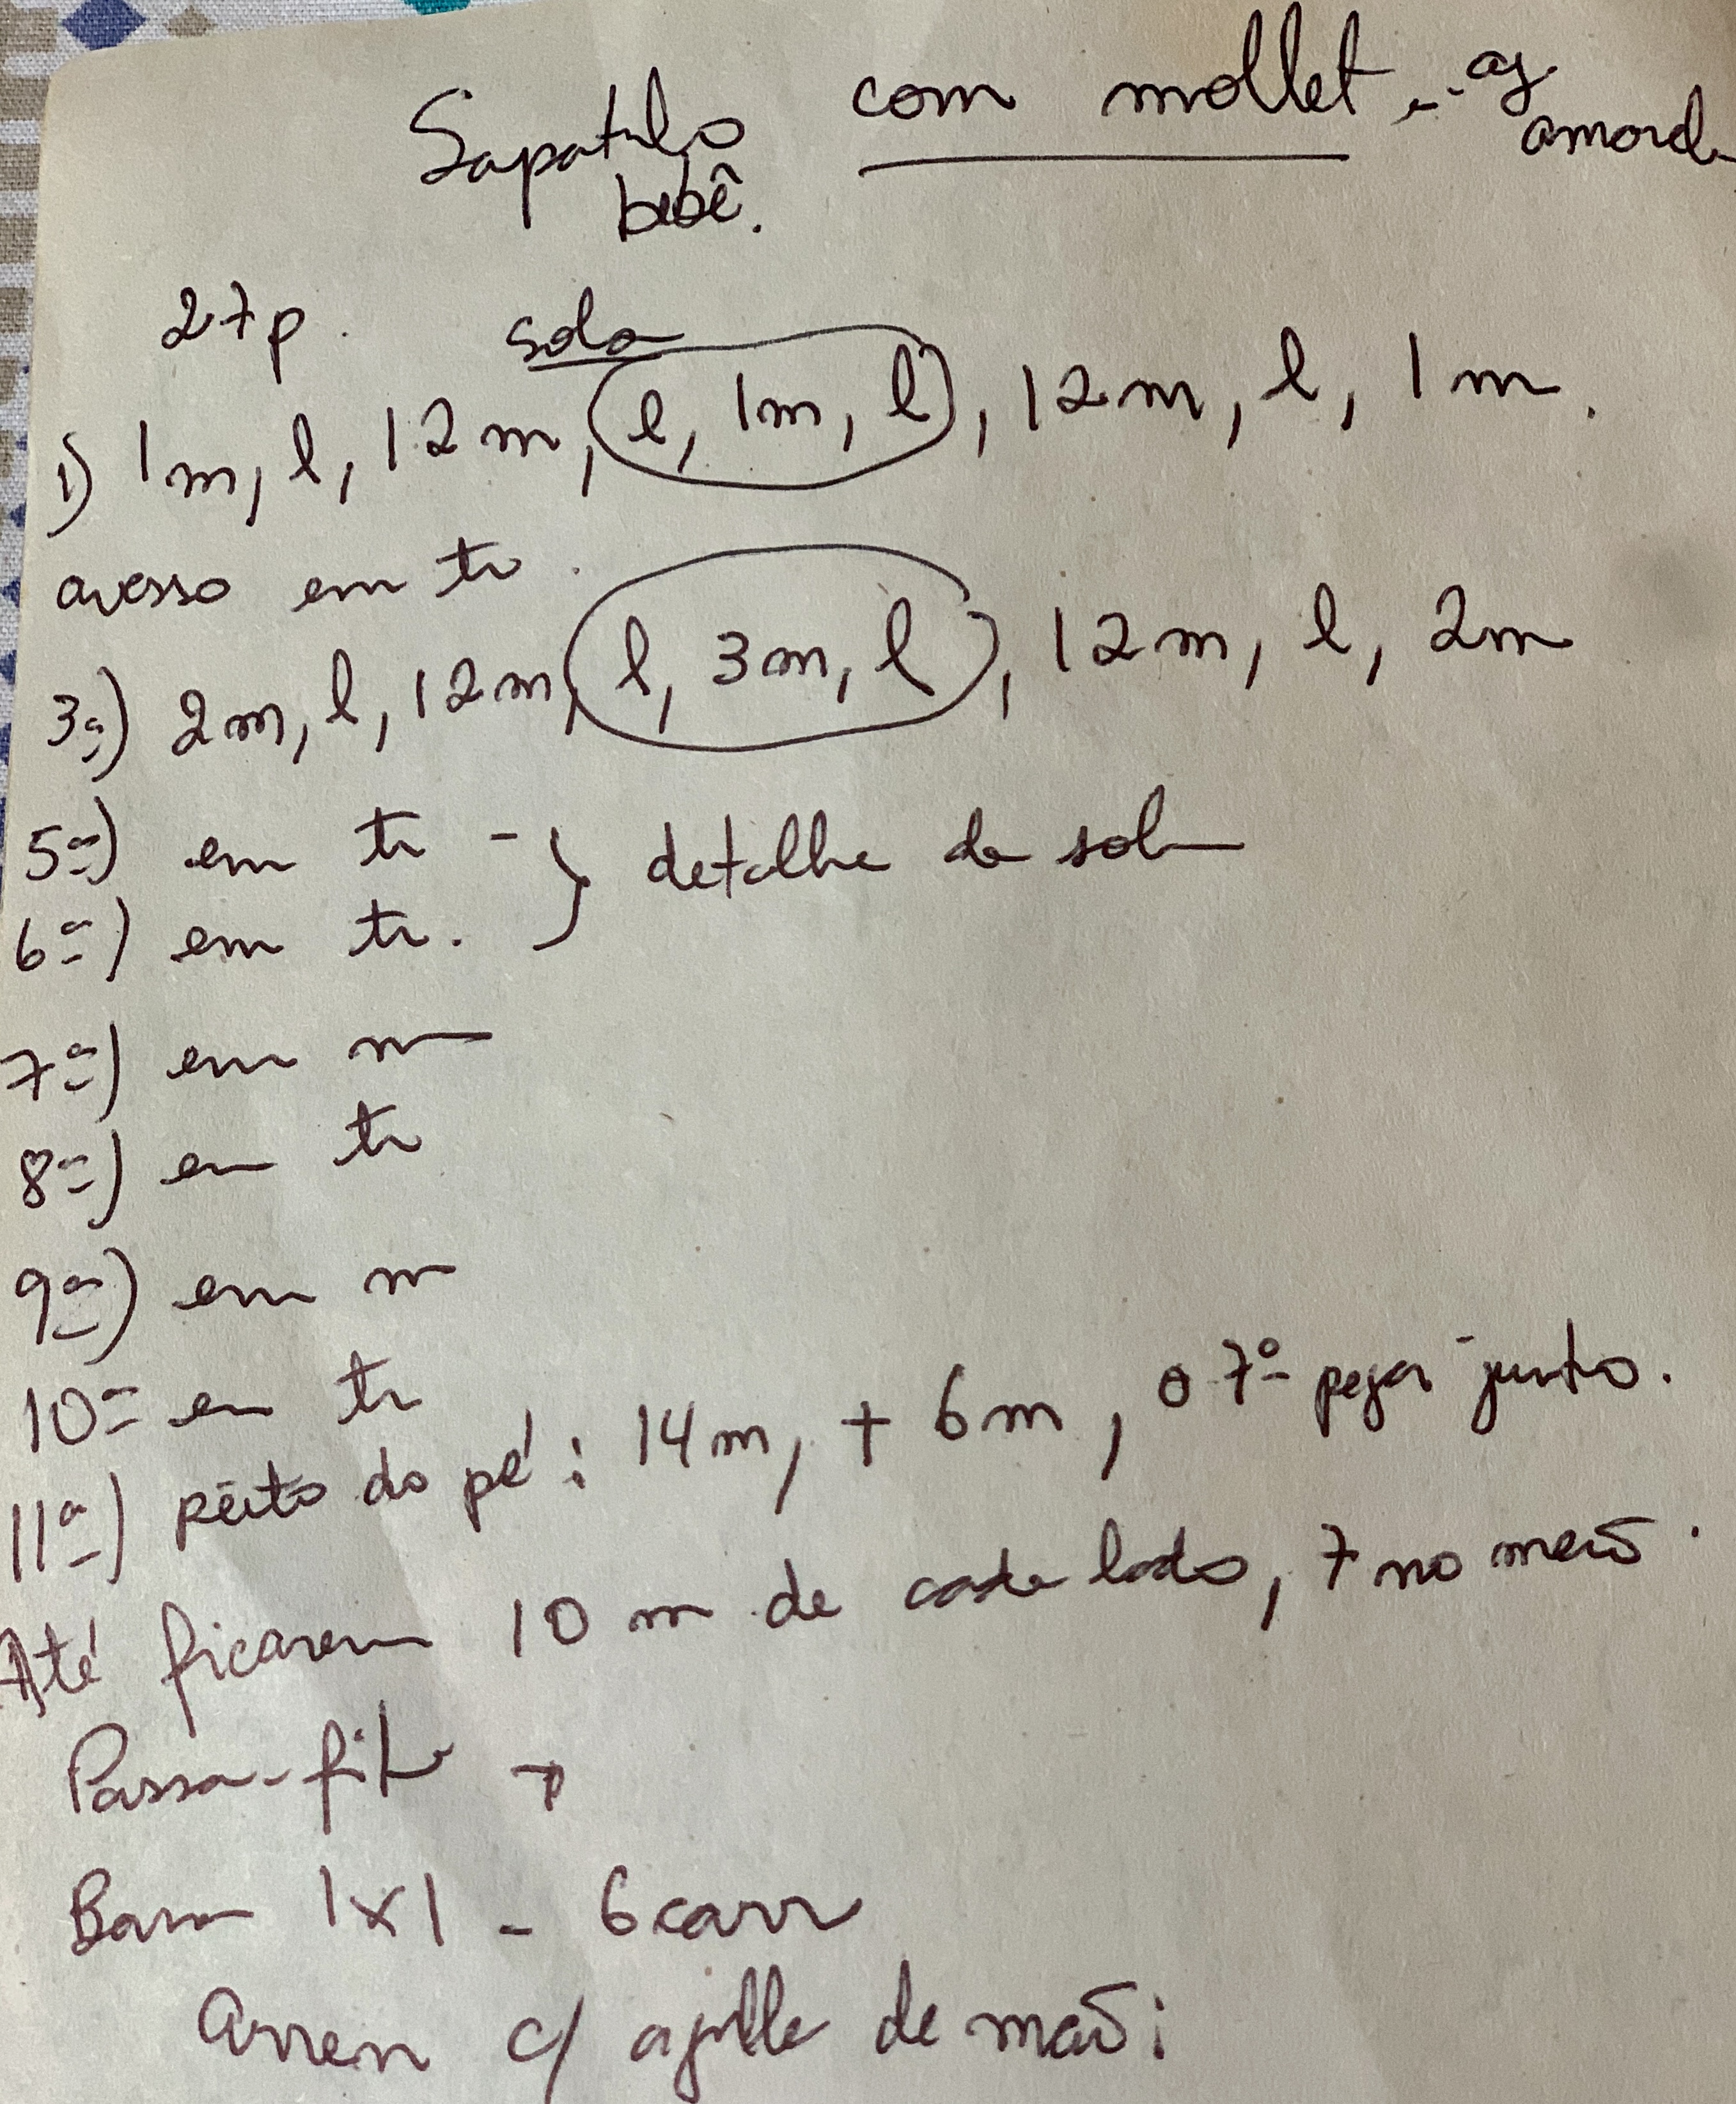 Sapatinho com mollet - ag
bebê. amarela
27p. sola
1) 1m, l, 12m, (l, 1m, l), 12m, l, 1m.
avesso em tr.
3ª) 2m, l, 12m, (l, 3m, l), 12m, l, 2m
5ª) em tr - } detalhe da sola
6ª) em tr.
7ª) em m
8ª) em tr
9ª) em m
10ª em tr
11ª) peito do pé: 14m, + 6m, o 7º pegar junto.
Até ficarem 10 m de cada lado, 7 no meio.
Passa-fita →
Barra 1x1 - 6 carr
Arrem c/ agulha de mão: